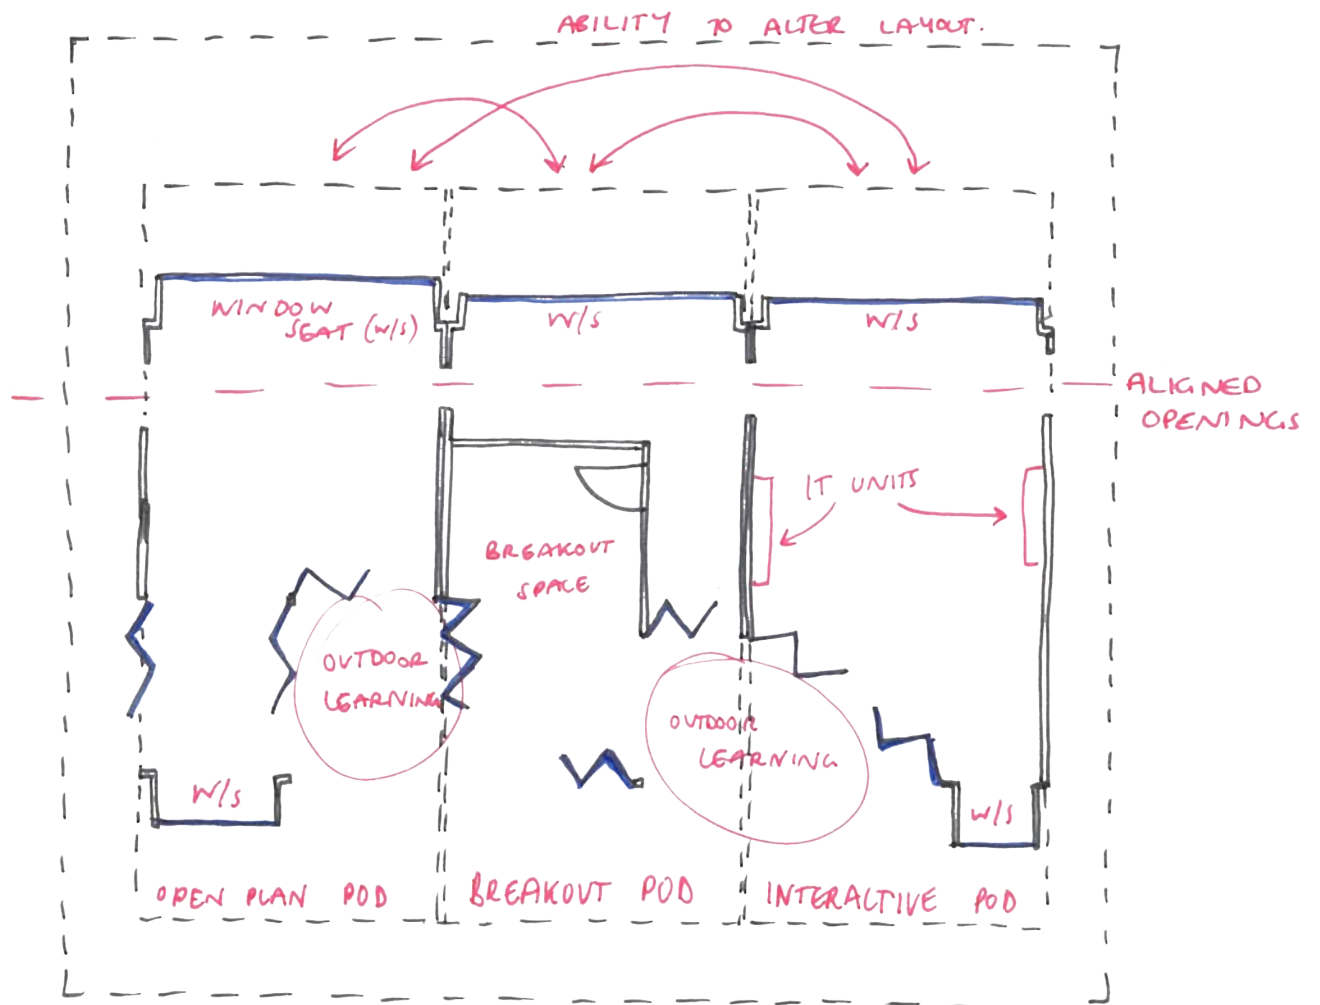 ABILITY TO ALTER LAYOUT.
WINDOW
SEAT (W/S)
W/S
W/S
ALIGNED
OPENINGS
IT UNITS
BREAKOUT
SPACE
OUTDOOR
LEARNING
OUTDOOR
LEARNING
W/S
W/S
OPEN PLAN POD
BREAKOUT POD
INTERACTIVE POD